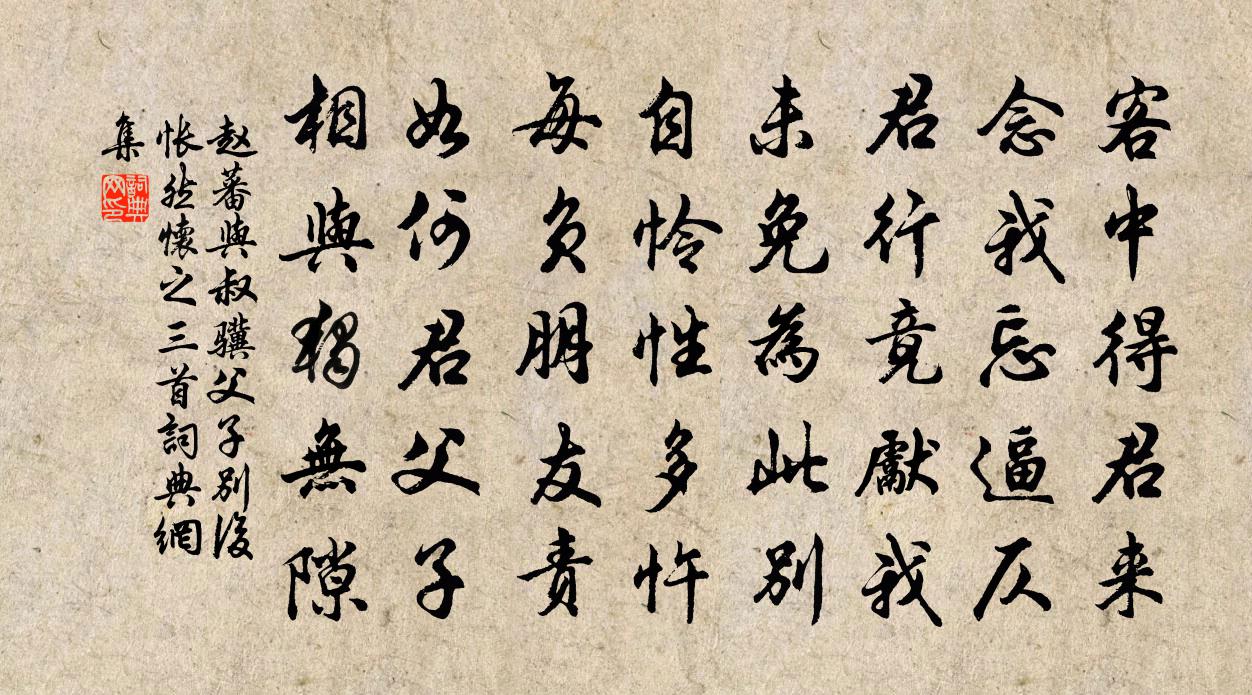 客中得君来
念我忘逼仄
君行竟獻我
未免為此别
自怜性多忤
每负朋友责
如何君父子
相與獨無隙
赵蕃與叔骥父子别後
怅然懷之三首詞典網
集
詞典网印